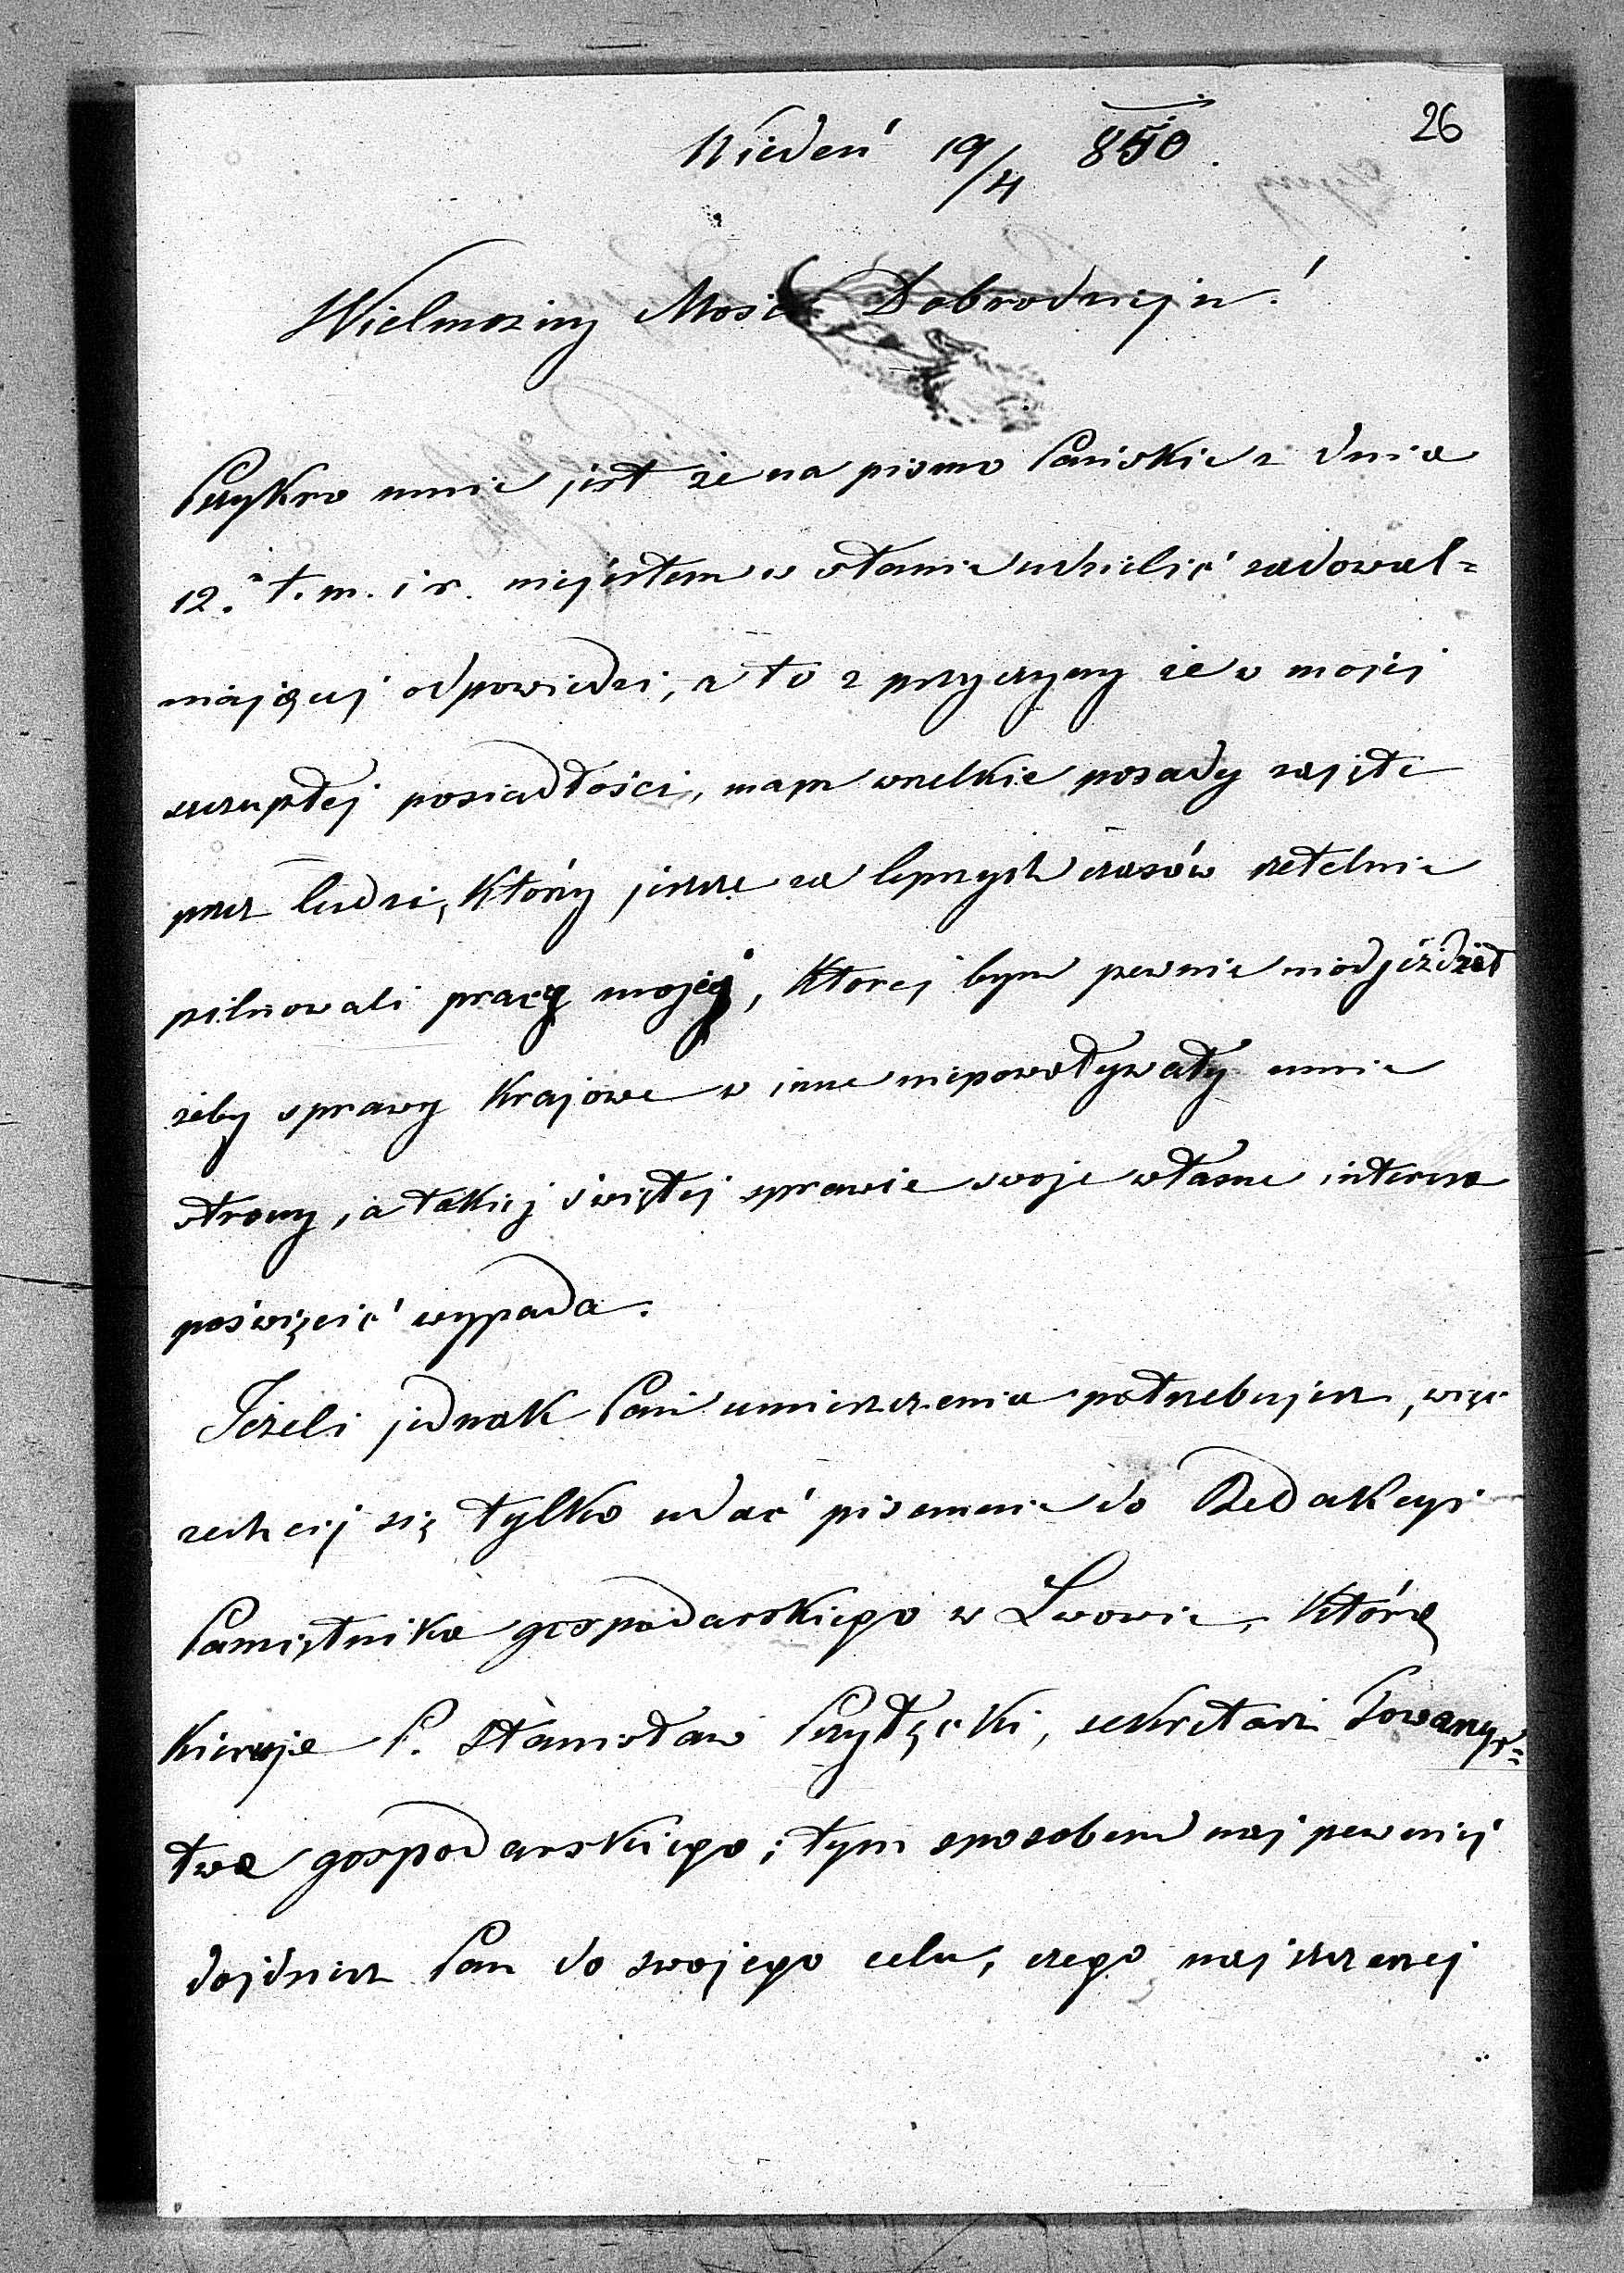 26
Wiedeń 19/4 850.
Wielmożny Mości Dobrodzieju!
Przykro mnie jest że na pismo Pańskie z dnia
12. t. m. i r. niejestem w stanie udzielić zadowal=
niającej odpowiedzi, a to z przyczyny że w mojej
szczupłej posiadłości, mam wszelkie posady zajęte
przez ludzi, którzy jeszcze za lepszych czasów rzetelnie
pilnowali pracy mojej, której bym pewnie nieodjeżdżał
żeby sprawy krajowe w inne niepowoływały mnie
strony, a takiej świętej sprawie swoje własne interesa
poświęcić wypada.
Jeżeli jednak Pan umieszczenia potrzebujesz, więc
zechciej się tylko udać pisemnie do Redakcyi
Pamiętnika gospodarskiego w Lwowie, którą
kieruje P. Stanisław Przyłęcki, sekretarz Towarzys=
twa gospodarskiego; tym sposobem najpewniej
dojdziesz Pan do swojego celu, czego najszczerzej